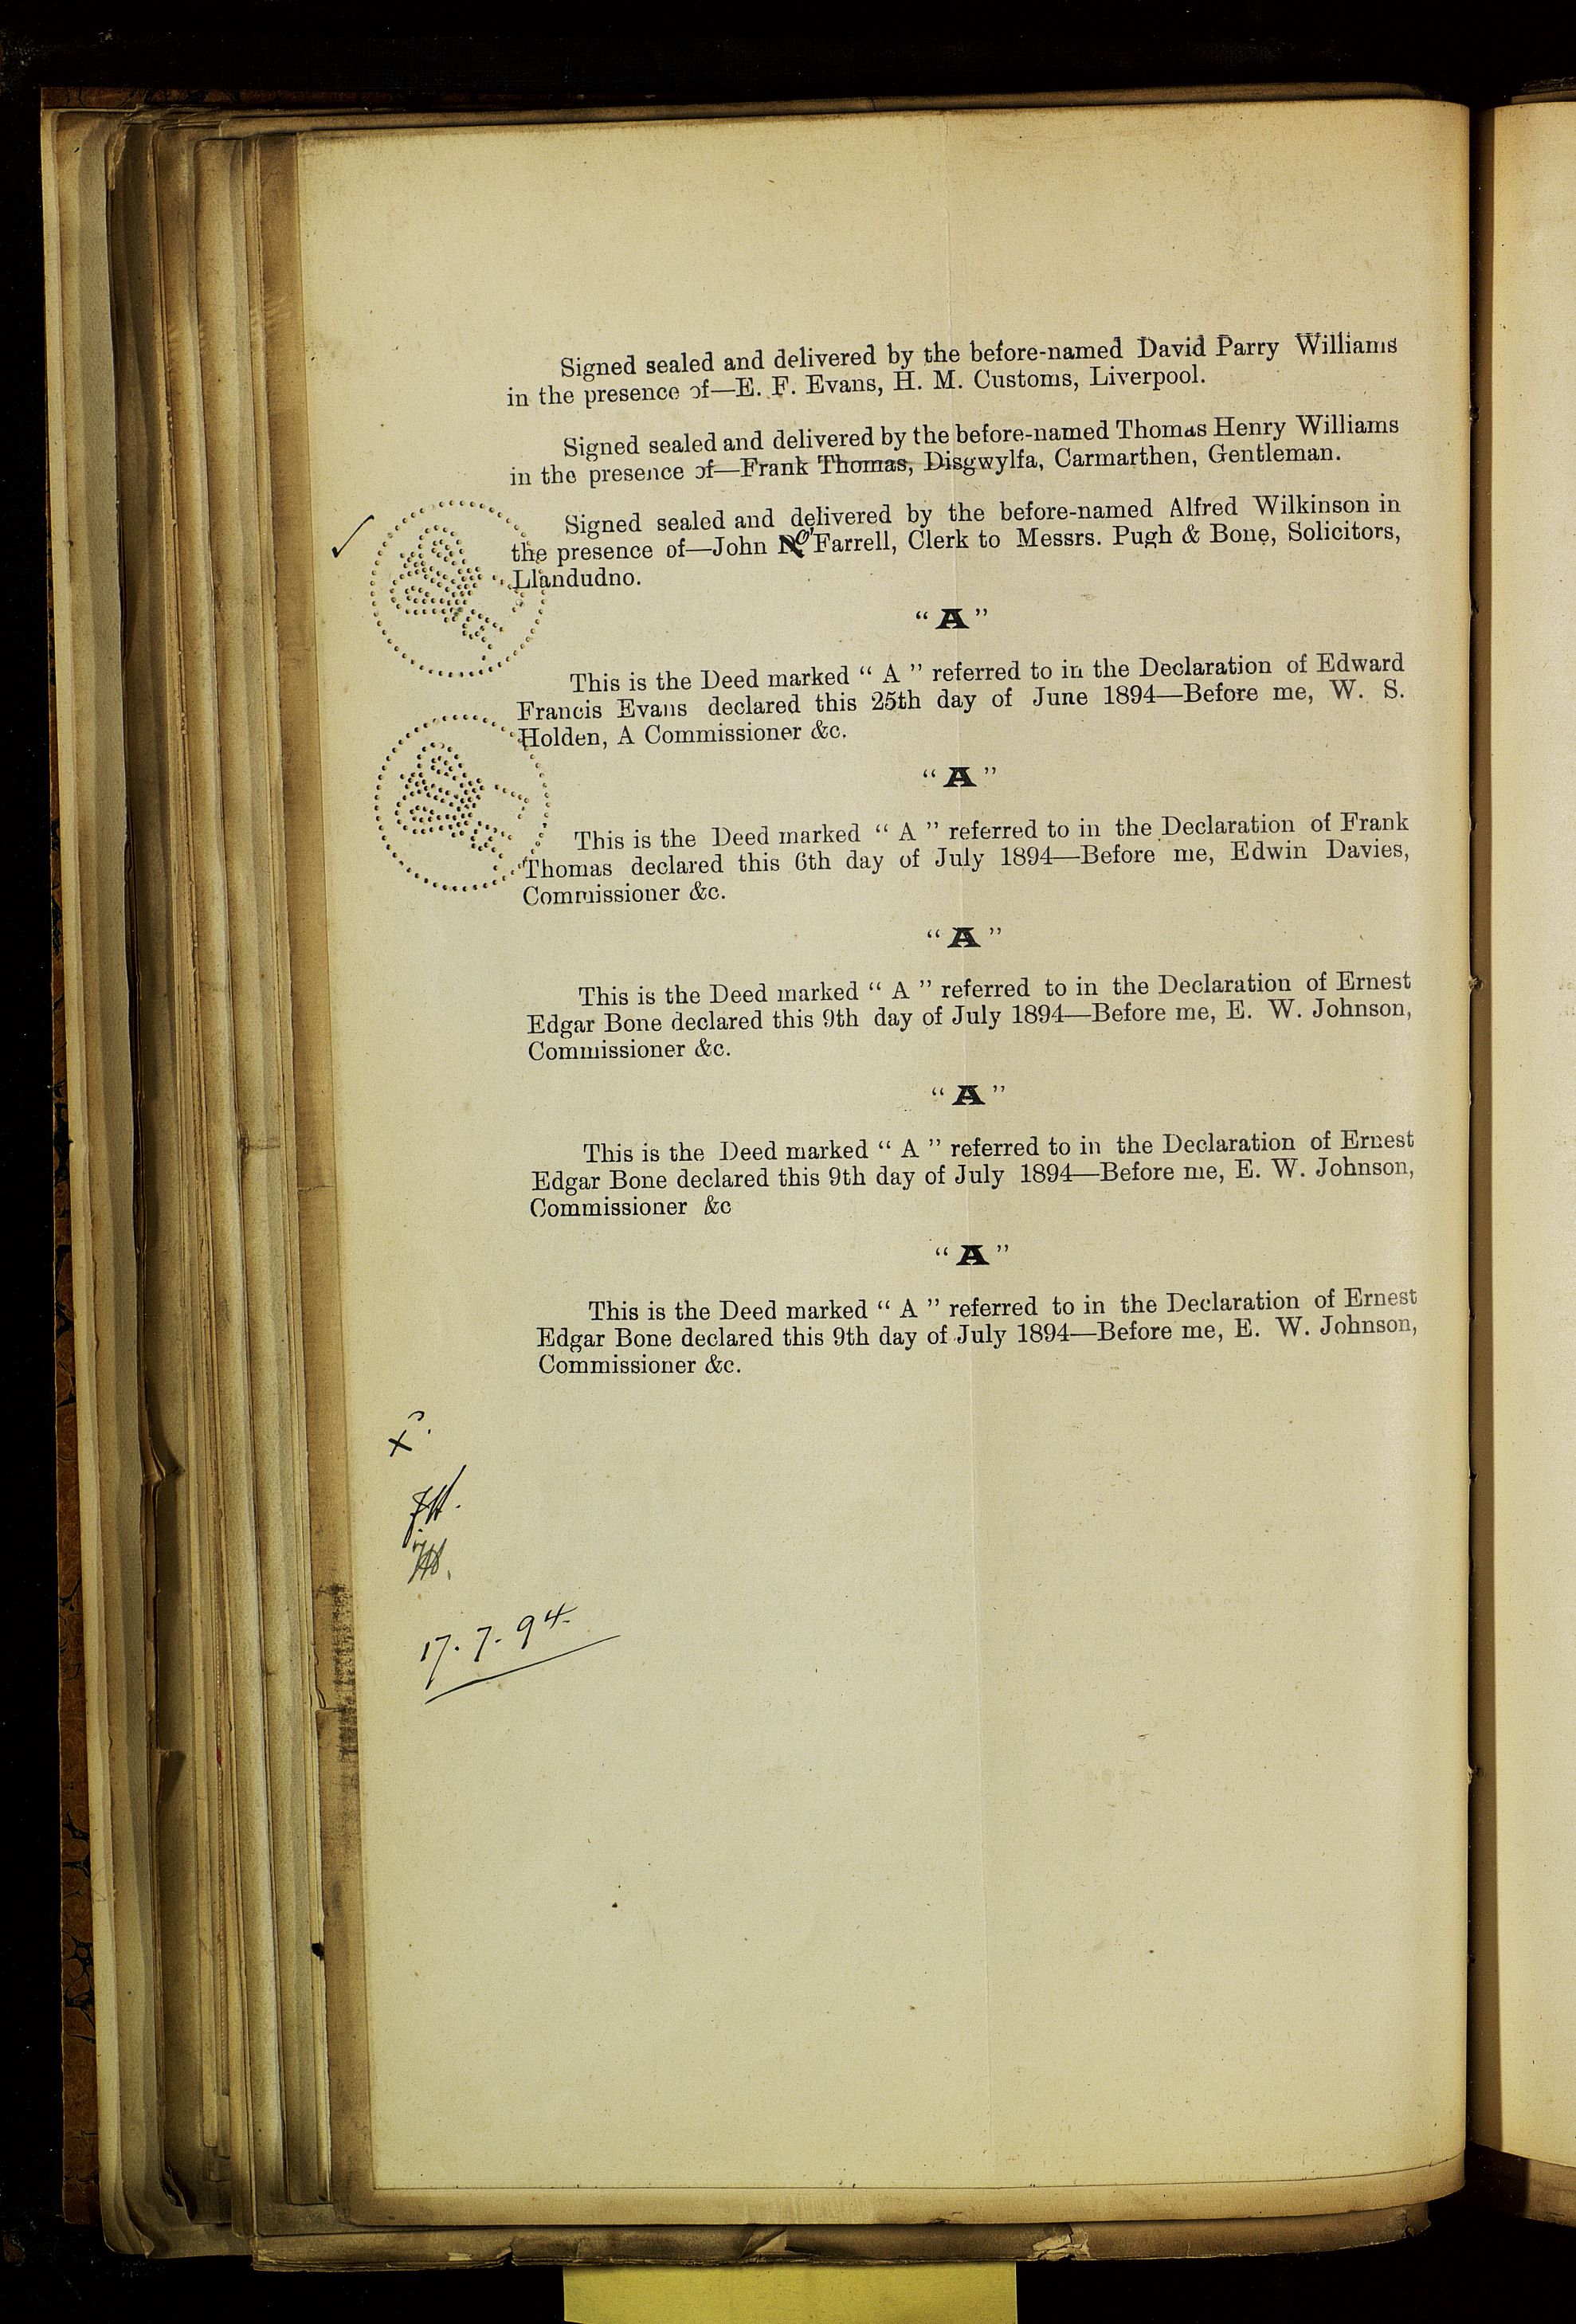 Signed sealed and delivered by the before-named David Parry Williams
in the presence of—E. F. Evans, H. M. Customs, Liverpool.
Signed sealed and delivered by the before-named Thomas Henry Williams
in the presence of—Frank Thomas, Disgwylfa, Carmarthen, Gentleman.
Signed sealed and delivered by the before-named Alfred Wilkinson in
the presence of—John O'Farrell, Clerk to Messrs. Pugh & Bone, Solicitors,
Llandudno.
“ A ”
This is the Deed marked “ A ” referred to in the Declaration of Edward
Francis Evans declared this 25th day of June 1894—Before me, W. S.
Holden, A Commissioner &c.
“ A ”
This is the Deed marked “ A ” referred to in the Declaration of Frank
Thomas declared this 6th day of July 1894—Before me, Edwin Davies,
Commissioner &c.
“ A ”
This is the Deed marked “ A ” referred to in the Declaration of Ernest
Edgar Bone declared this 9th day of July 1894—Before me, E. W. Johnson,
Commissioner &c.
“ A ”
This is the Deed marked “ A ” referred to in the Declaration of Ernest
Edgar Bone declared this 9th day of July 1894—Before me, E. W. Johnson,
Commissioner &c
“ A ”
This is the Deed marked “ A ” referred to in the Declaration of Ernest
Edgar Bone declared this 9th day of July 1894—Before me, E. W. Johnson,
Commissioner &c.
17. 7. 94.